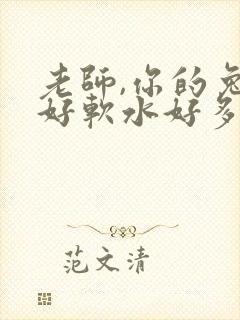 老師,你的兔
好軟水好多
范文清